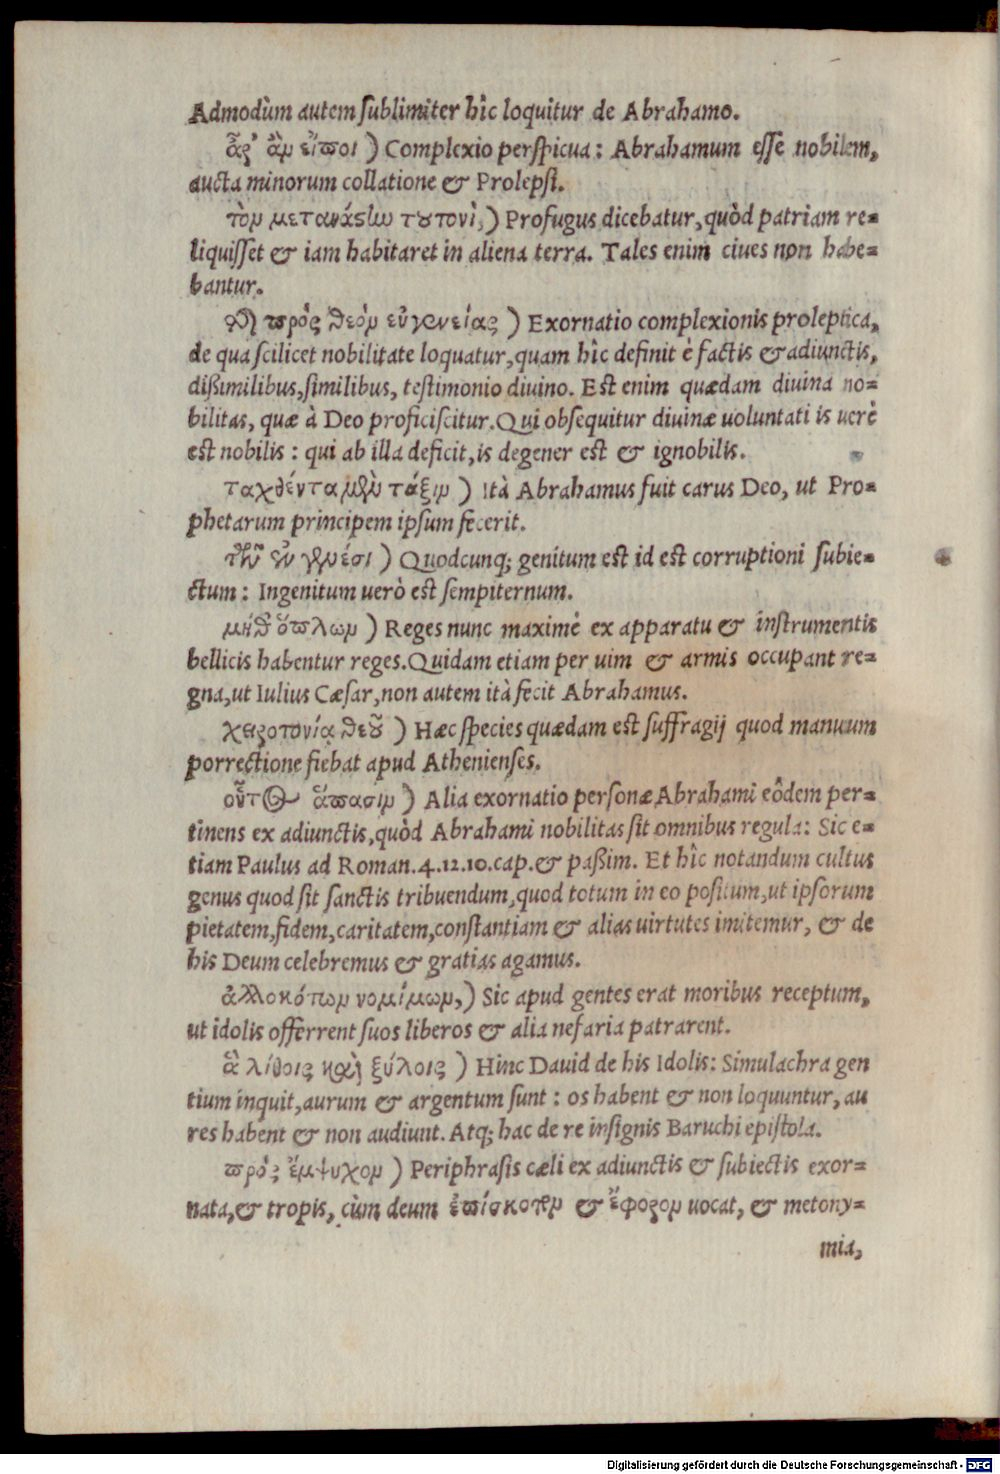 Admodùm autem sublimiter hîc loquitur de Abrahamo.
ἆρ' ἂν εἴποι ) Complexio perspicua: Abrahamum esse nobilem,
aucta minorum collatione & Prolepsi.
τὸν μετανάστω τουτονὶ,) Profugus dicebatur, quòd patriam re=
liquisset & iam habitaret in aliena terra. Tales enim ciues non habe=
bantur.
πρὸς θεὸν εὐγενείας ) Exornatio complexionis proleptica,
de qua scilicet nobilitate loquatur, quam hîc definit è factis & adiunctis,
dißimilibus, similibus, testimonio diuino. Est enim quædam diuina no=
bilitas, quæ à Deo proficiscitur. Qui obsequitur diuinæ uoluntati is uerè
est nobilis: qui ab illa deficit, is degener est & ignobilis.
ταχθέντα μὲν τάξιν ) Ità Abrahamus fuit carus Deo, ut Pro=
phetarum principem ipsum fecerit.
τῶν ἐν γενέσι ) Quodcunq; genitum est id est corruptioni subie=
ctum: Ingenitum uerò est sempiternum.
μήθ' ὅπλων ) Reges nunc maximè ex apparatu & instrumentis
bellicis habentur reges. Quidam etiam per uim & armis occupant re=
gna, ut Iulius Cæsar, non autem ità fecit Abrahamus.
χειροτονία θεοῦ ) Hæc species quædam est suffragij quod manuum
porrectione fiebat apud Athenienses.
οὗτος ἅπασιν ) Alia exornatio personæ Abrahami eôdem per=
tinens ex adiunctis, quòd Abrahami nobilitas sit omnibus regula: Sic e=
tiam Paulus ad Roman. 4. 12. 10. cap. & paßim. Et hîc notandum cultus
genus quod sit sanctis tribuendum, quod totum in eo positum, ut ipsorum
pietatem, fidem, caritatem, constantiam & alias uirtutes imitemur, & de
his Deum celebremus & gratias agamus.
ἀλλοκότων νομίμων,) Sic apud gentes erat moribus receptum,
ut idolis offerrent suos liberos & alia nefaria patrarent.
ἃ λίθοις καὶ ξύλοις ) Hinc Dauid de his Idolis: Simulachra gen
tium inquit, aurum & argentum sunt: os habent & non loquuntur, au
res habent & non audiunt. Atq; hac de re insignis Baruchi epistola.
πρὸς ἔμψυχον ) Periphrasis cæli ex adiunctis & subiectis exor=
nata, & tropis, cùm deum ἐπίσκοπον & ἔφορον uocat, & metony=
mia,
Digitalisierung gefördert durch die Deutsche Forschungsgemeinschaft - DFG